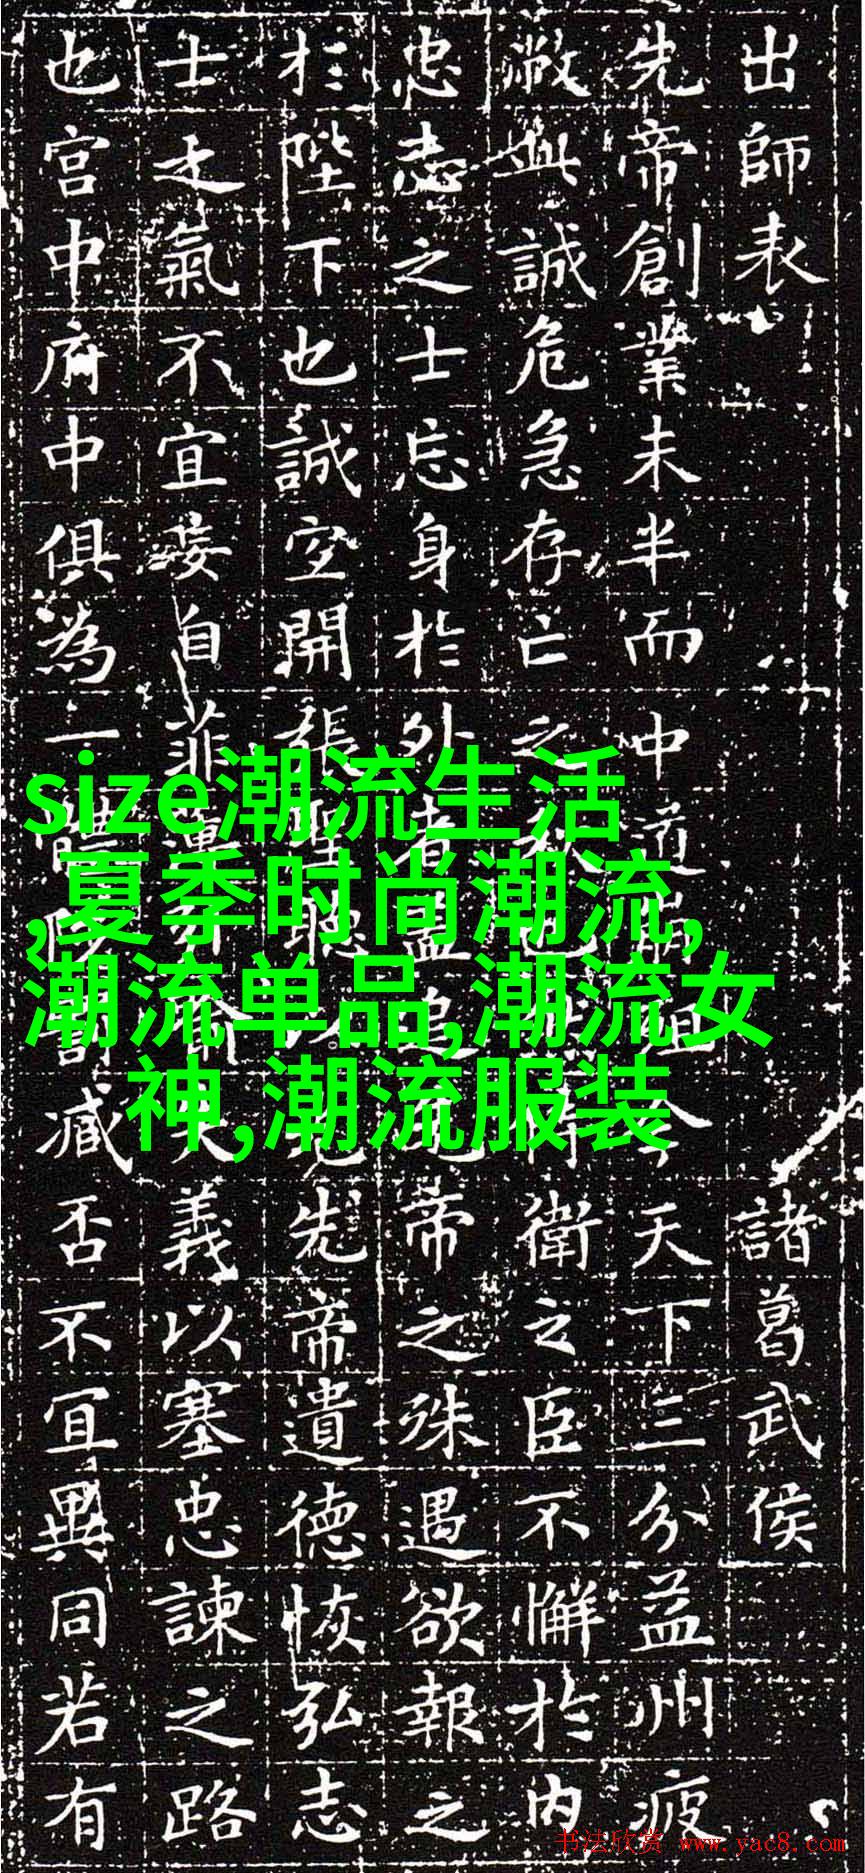 出師表 諸葛武侯
先帝創業未半而中道崩殂今天下三分益州疲
敝此誠危急存亡之秋也侍衛之臣不懈於內
忠志之士忘身於外者蓋追先帝之殊遇欲報之
於陛下也誠宜開張聖聽以光先帝遺德恢弘志
士之氣不宜妄自菲薄引喻失義以塞忠諫之路
也宮中府中俱為一體陟罰臧否不宜異同若有
size潮流生活
,夏季时尚潮流,
潮流单品,潮流女
神,潮流服装
书法欣赏 www.yac8.com